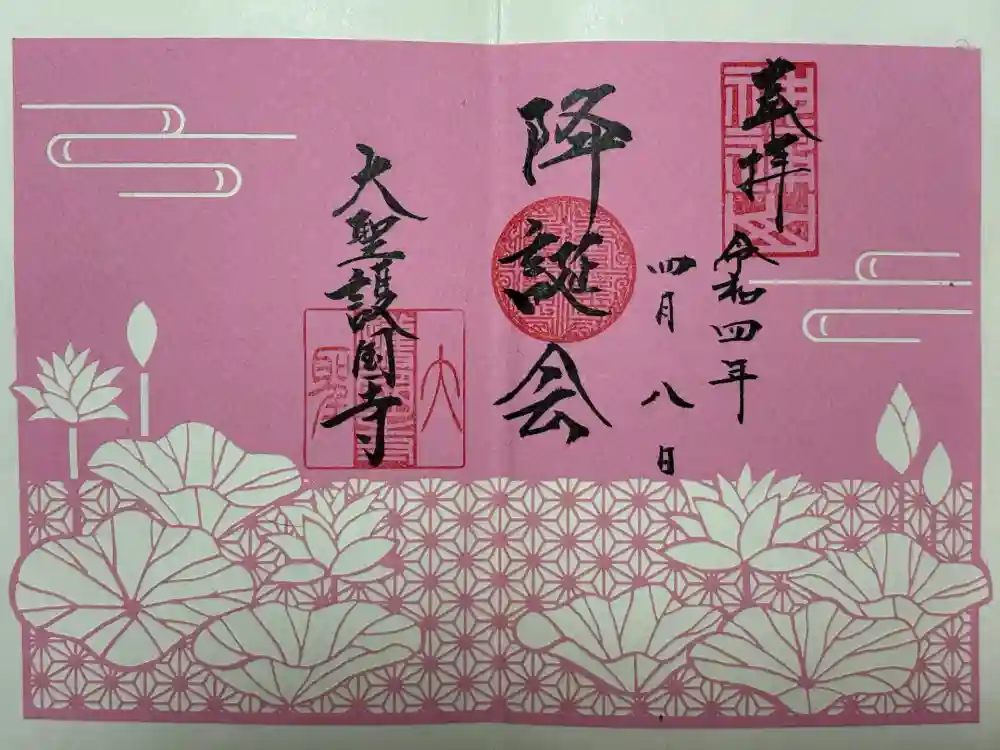 奉拝
令和四年
四月八日
降誕会
大聖護国寺